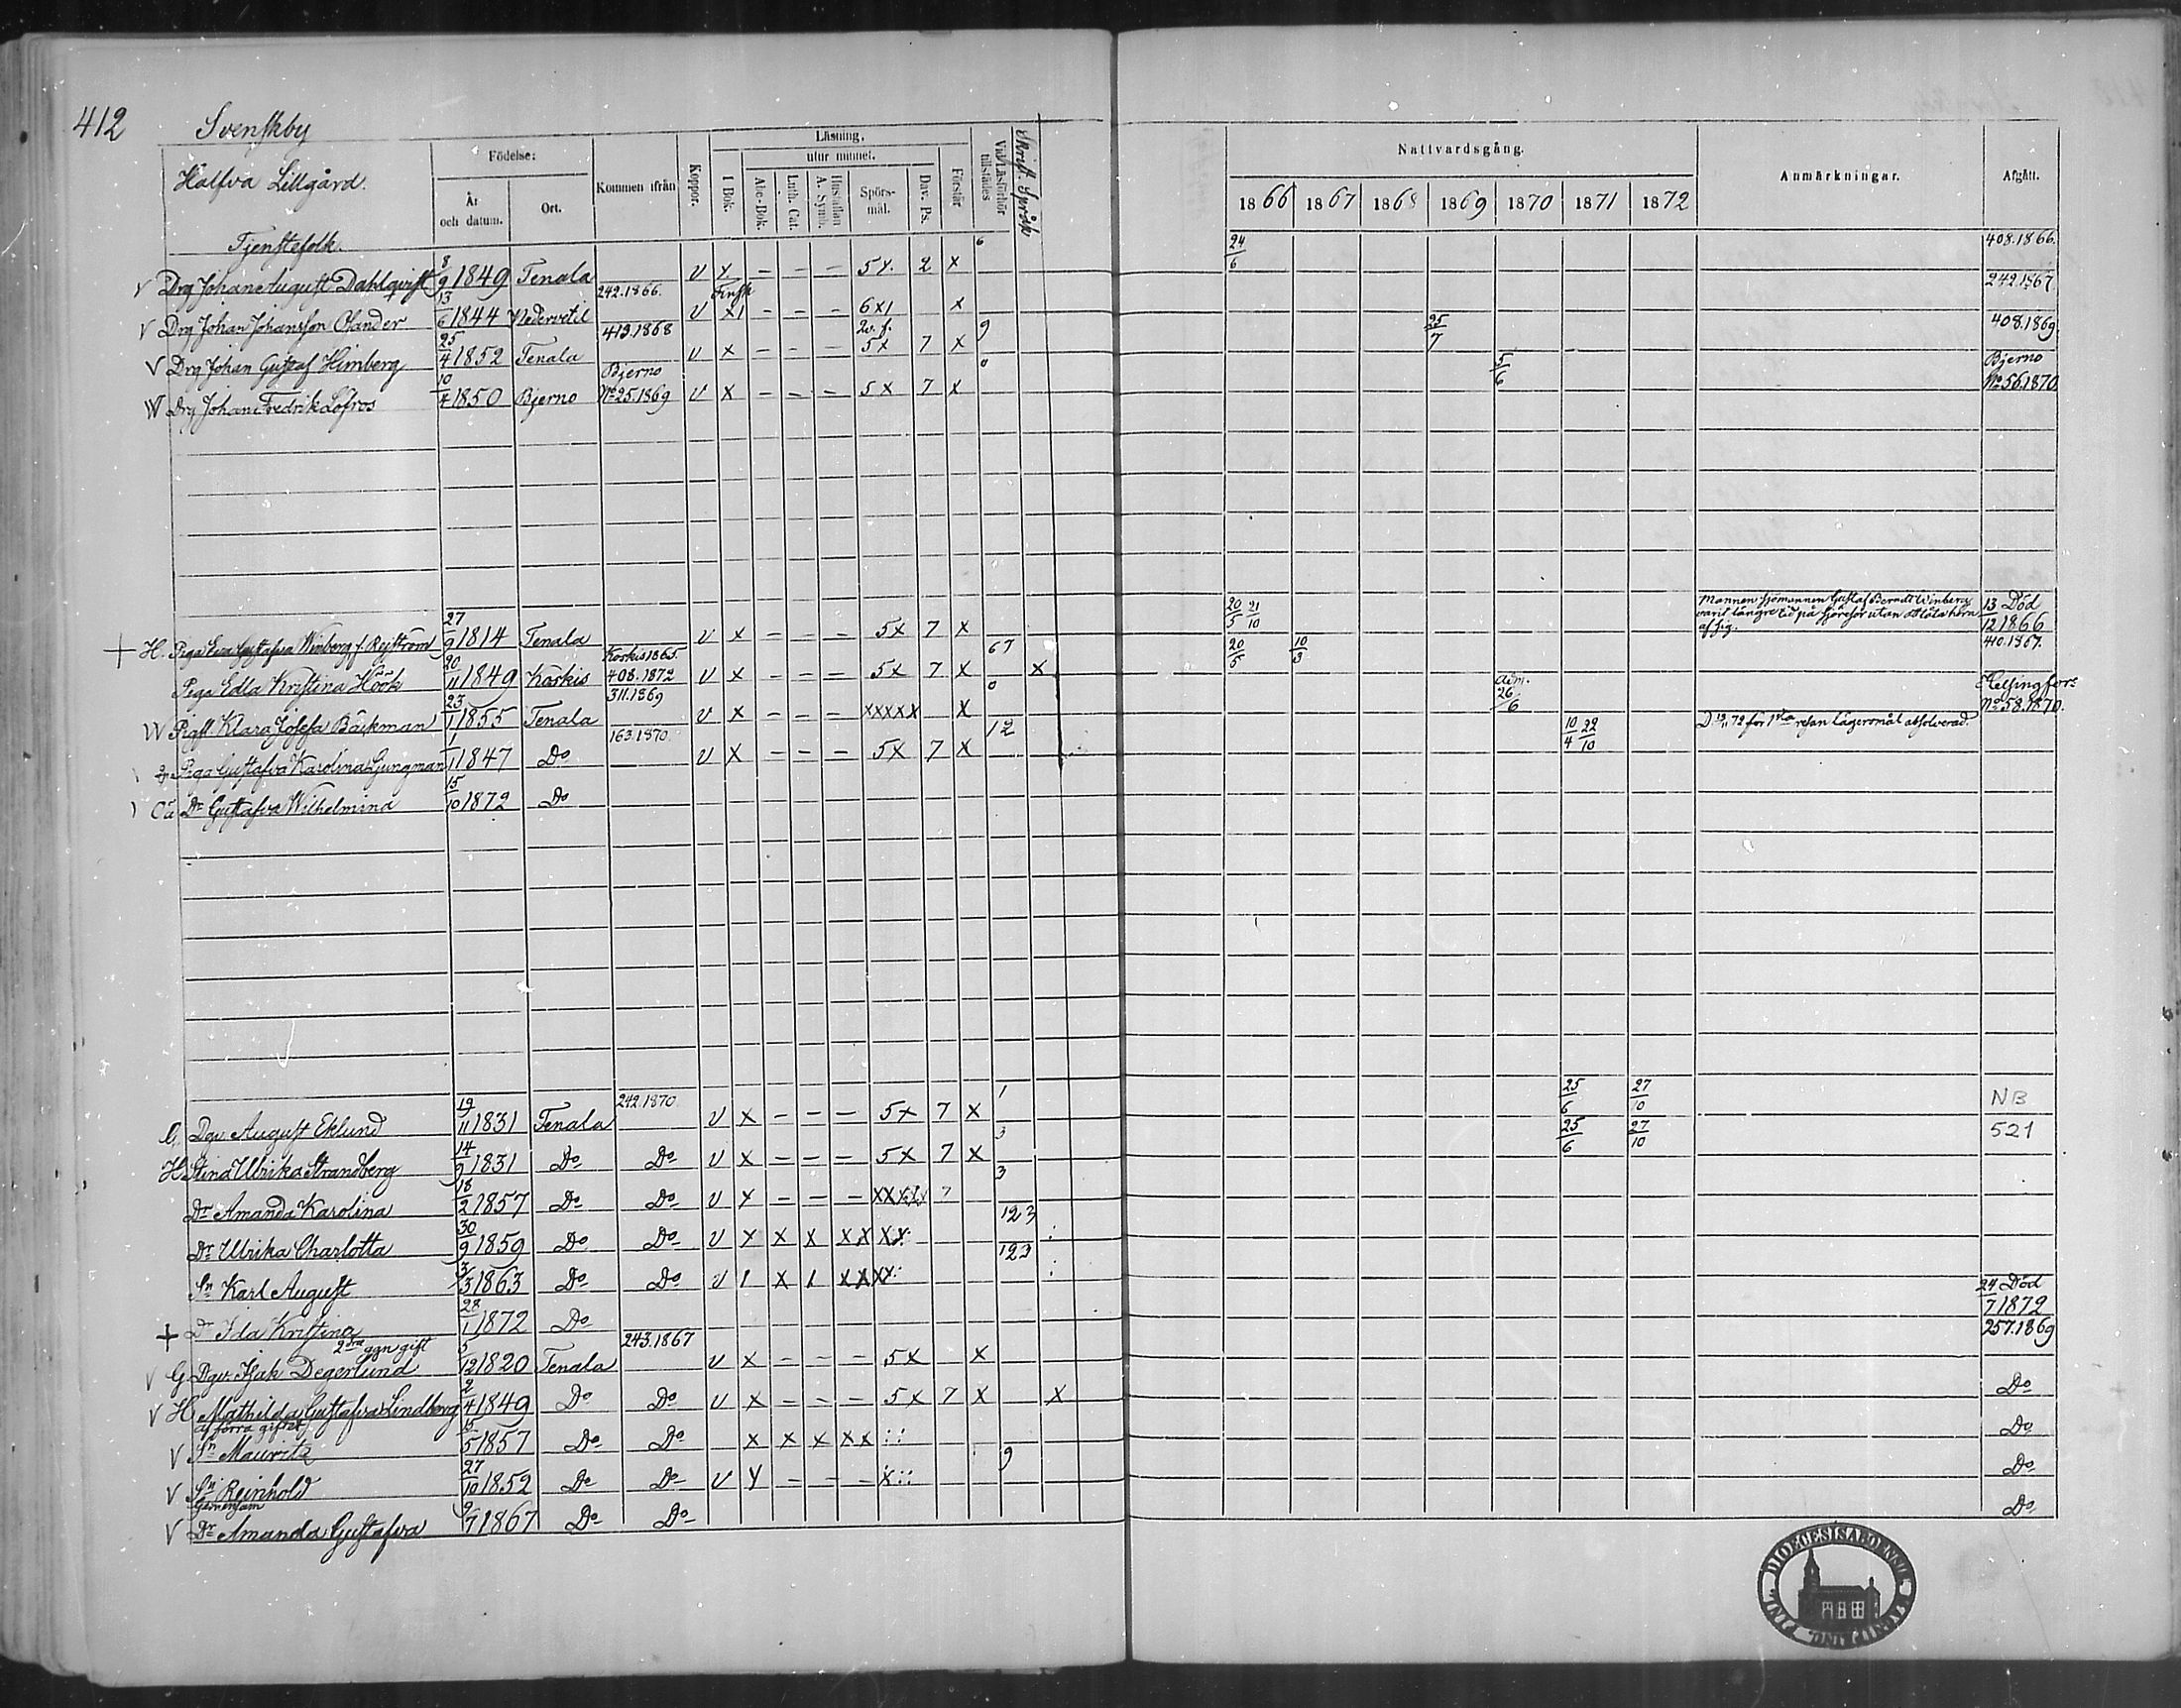 412 Svenskby
Halfva Lillgård.
Födelse:
År och datum.
Ort.
Kommen ifrån
Koppor.
Läsning.
utur minnet.
I Bok.
Abc-Bok.
Luth. Cat.
Hustaflan A. Symb.
Spörs-mål.
Dav. Ps.
Förstår
Vid Läsförhör tillstädes
Skrift. Språk
Nattvardsgång.
1866 1867 1868 1869 1870 1871 1872
Anmärkningar.
Afgått.
Tjenstefolk.
V Drg Johan August Dahlqvist 8/9 1849 Tenala v x – – – 5x. 2 x 6 24/6 408.1866.
V Drg Johan Johansson Olander 13/6 1844 Nedervetil 242.1866. v Finsk x1 – – – 6x1 x 242.1867
V Drg Johan Gustaf Himberg 25/4 1852 Tenala 413.1868 v x – – – 5x 7 x 9 25/7 408.1869
W Drg Johan Fredrik Löfros 10/4 1850 Bjerno Bjerno No 25.1869 v x – – – 5x 7 x 0 5/6 Bjerno No 56.1870
+ H. Piga Eva Gustafva Winberg f. Rejström 27/9 1814 Tenala v x – – – 5x 7 x 20/5 21/10 Mannen sjömannen Gustaf Winberg varit längre tid på sjöresor utan att låta höra af sig. 13/12 Död 1866
Piga Edla Kristina Höök 20/11 1849 Koskis Koskis 1865. 408.1872 v x – – – 5x 7 x 67 x 20/5 10/3 410.1867.
W Pigfl. Klara Josefa Bäckman 23/1 1855 Tenala 311.1869 v x – – – xxxxx x 0 Adm. 26/6 Helsingfors No 58.1870.
Piga Gustafva Karolina Ljungman 1/1 1847 Do 163.1870. v x – – – 5x 7 x 12 10/4 22/10 D. 72 för 1sta resan lägersmål absolverad.
Oä Dr Gustafva Wilhelmina 15/10 1872 Do
G. Dgv. August Eklund 19/11 1831 Tenala 242.1870. v x – – – 5x 7 x 1 25/6 27/10 NB
H. Stina Ulrika Strandberg 14/9 1831 Do Do v x – – – 5x 7 x 3 25/6 27/10 521
Dr Amanda Karolina 18/2 1857 Do Do v x – – – 7 3
Dr Ulrika Charlotta 30/9 1859 Do Do v x x x xx xx: 123 :
Sn Karl August 3/3 1863 Do Do v 1 x 1 xxxx: 123 :
+ Dr Ida Kristina 28/1 1872 Do 24/7 Död 1872
V G Dgv. Isak Degerlund 2dra ggn gift 5/12 1820 Tenala 243.1867 v x – – – 5x x 257.1869
V H Mathilda Gustafva Lindberg 2/4 1849 Do Do v x – – – 5x 7 x x Do
af förra giftet
V Sn Mauritz 15/5 1857 Do Do x x x xx :: Do
V Sn Reinhold 27/10 1852 Do Do v x – – – x:: 9 Do
Gemensam
V Dr Amanda Gustafva 9/7 1867 Do Do Do